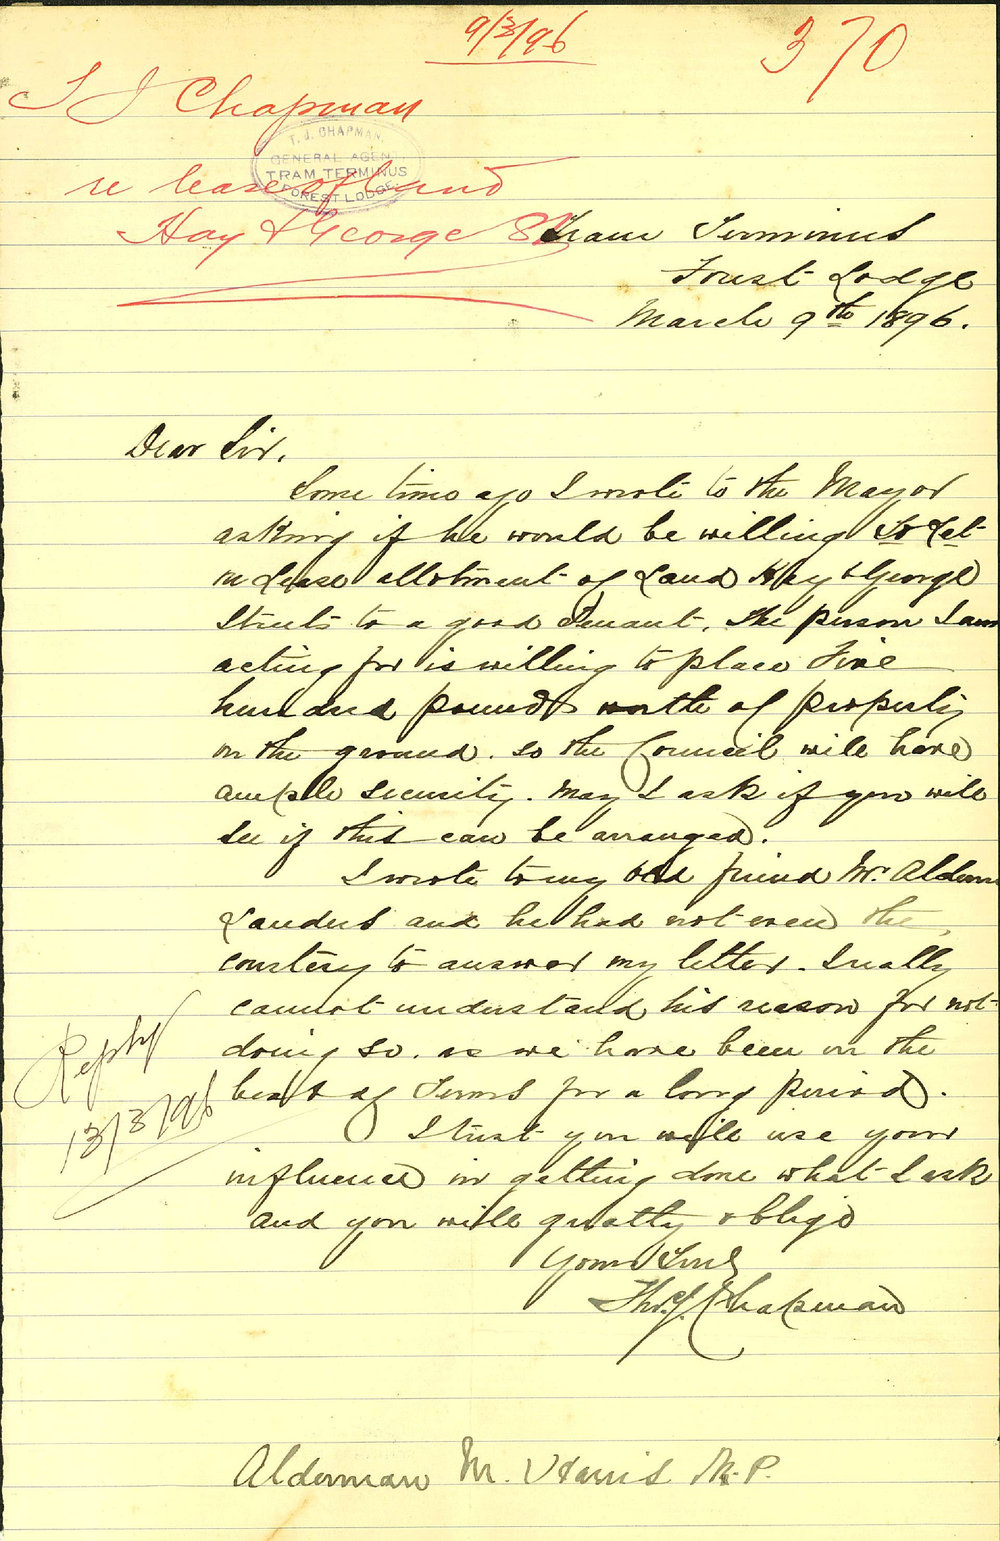 9/3/96
370
T J Chapman
T. J. CHAPMAN,
GENERAL AGENT,
TRAM TERMINUS
FOREST LODGE
re lease of land
Hay & George St
Tram Terminus
Forest Lodge
March 9th 1896.
Dear Sir,
Some time ago I wrote to the Mayor
asking if he would be willing to Let
on Lease allotment of Land Hay & George
Streets to a good Tenant. The person I am
acting for is willing to place Five
hundred pounds worth of property
on the ground. so the Council will have
ample security. May I ask if you will
see if this can be arranged.
I wrote to my old friend Mr. Alderm
Landers and he had not even the
courtesy to answer my letter. I really
cannot understand his reason for not
doing so. as we have been on the
best of Terms for a long period.
Reply
13/3/96
I trust you will use your
influence in getting done what I ask
and you will greatly oblige
Yours Truly
Thos. J. Chapman
Alderman M. Harris M.P.